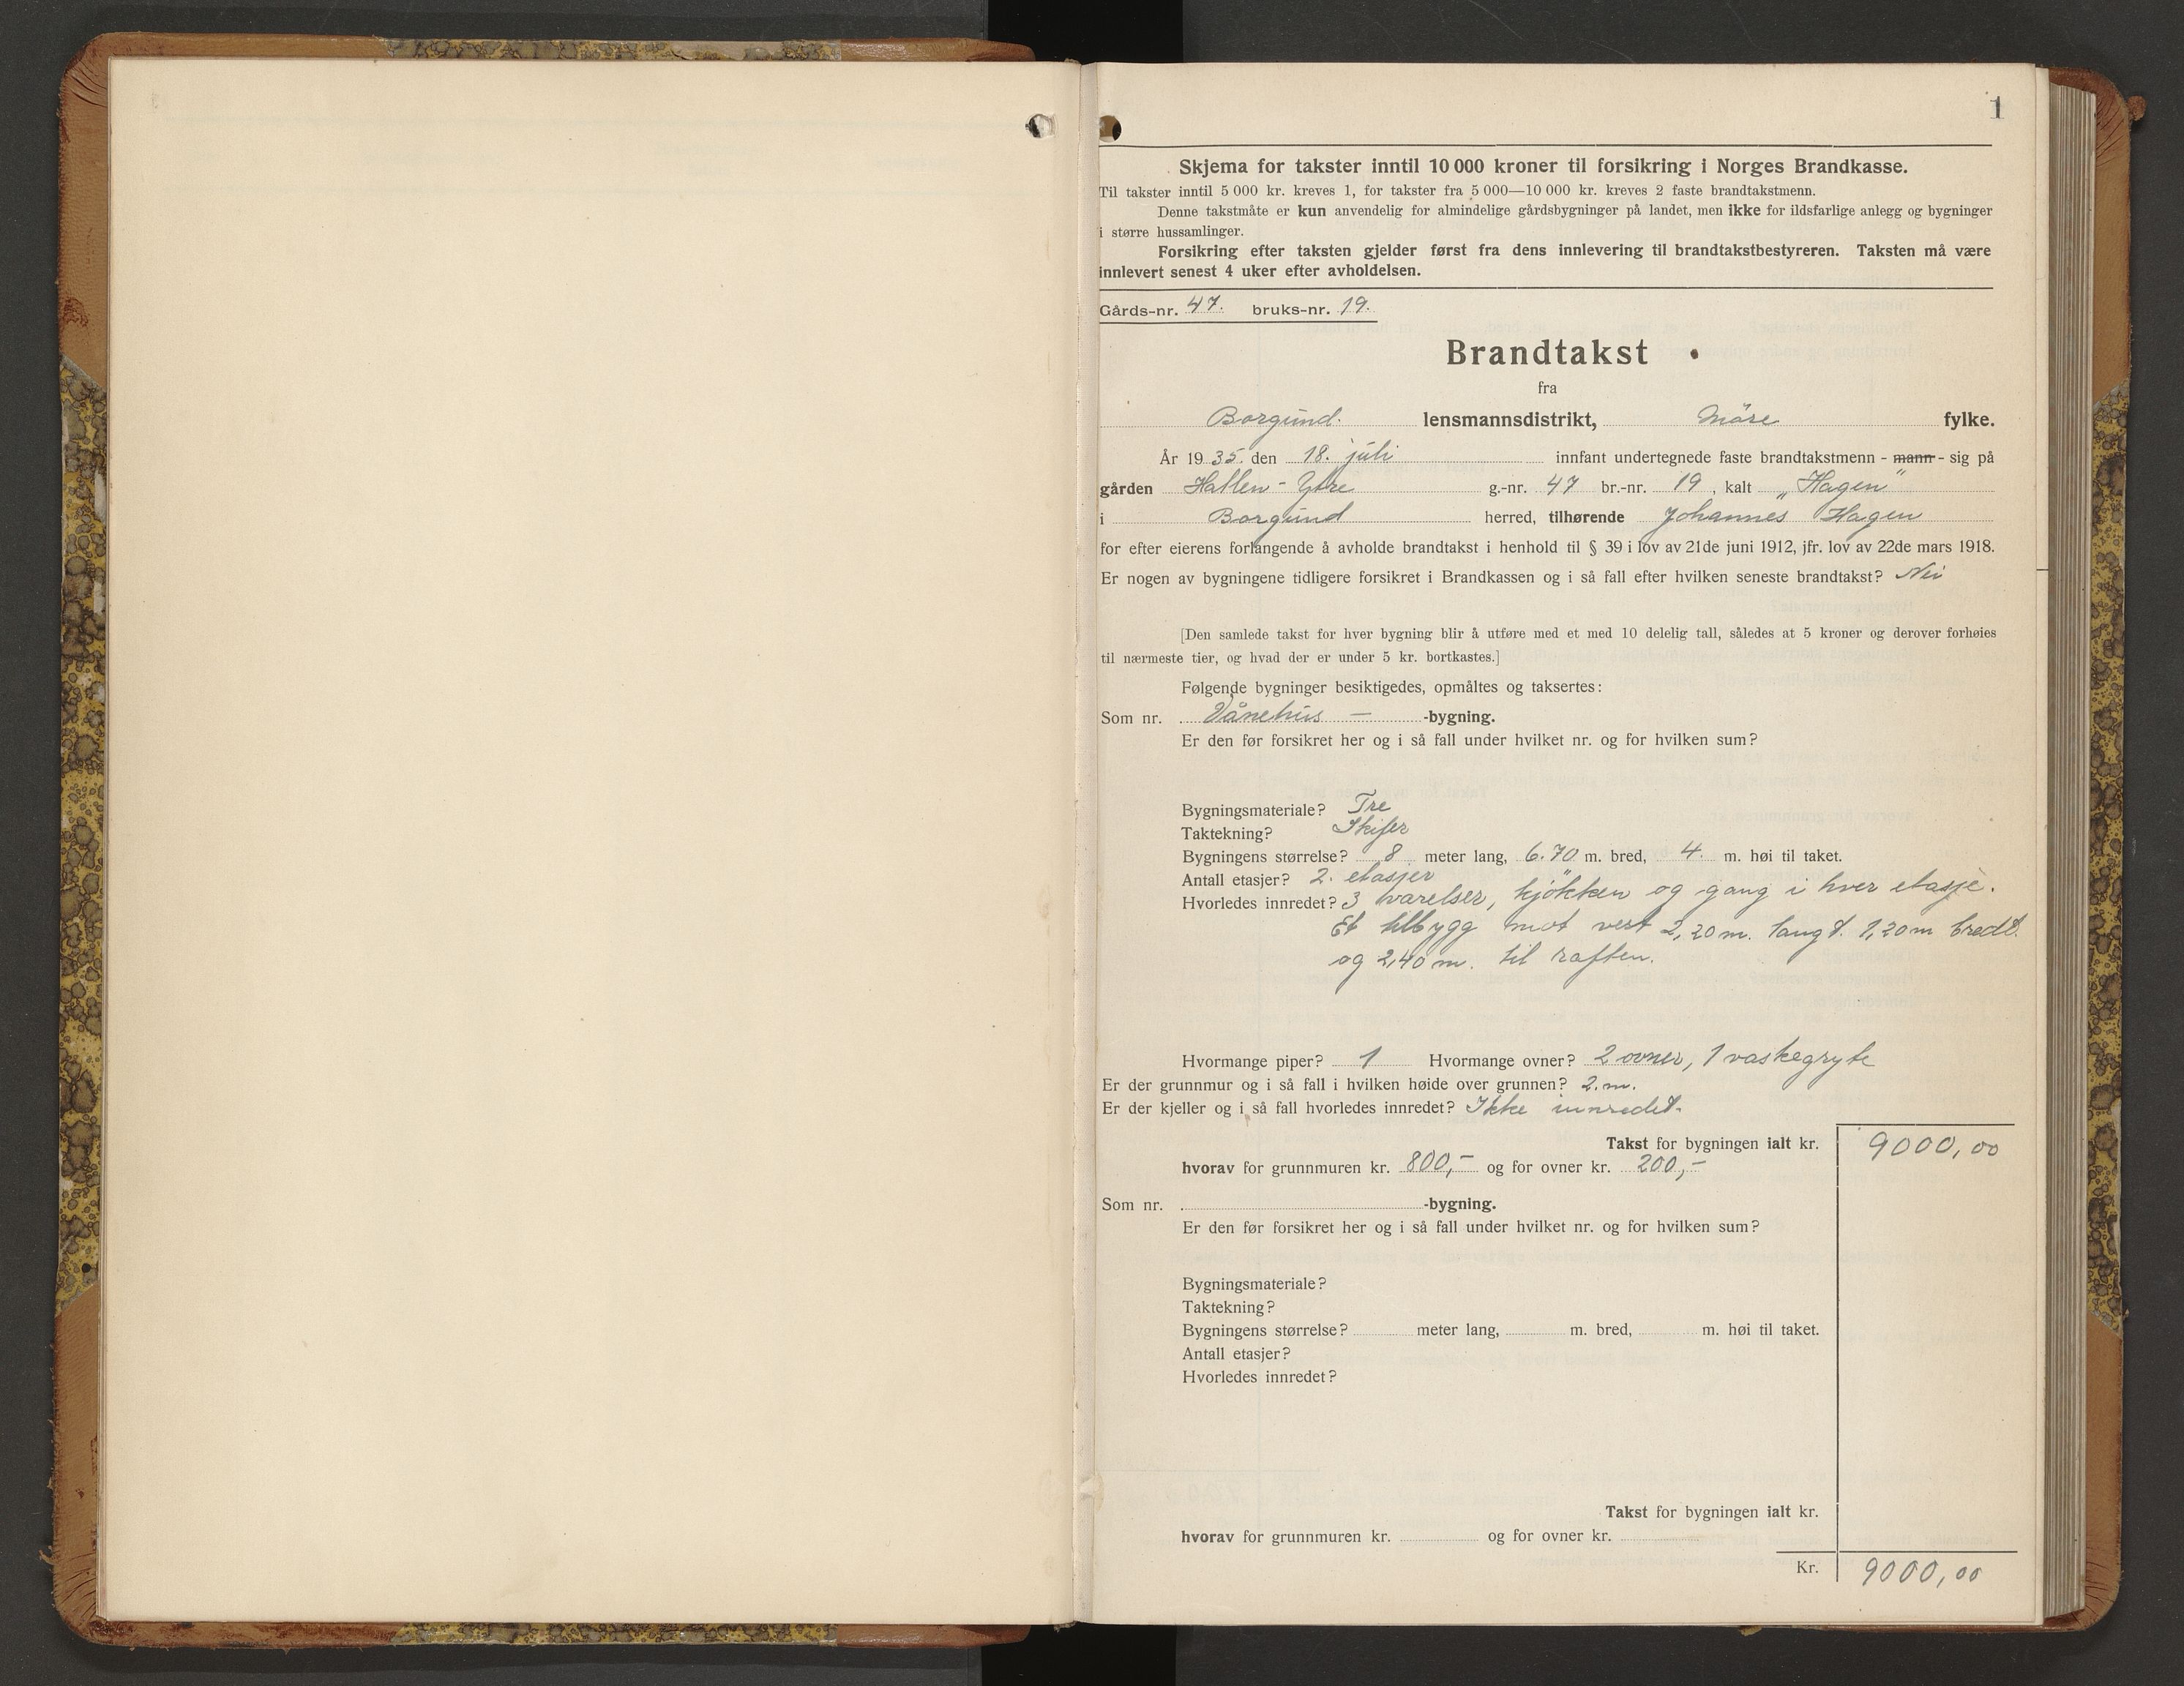 1
Skjema for takster inntil 10 000 kroner til forsikring i Norges Brandkasse.
Til takster inntil 5 000 kr. kreves 1, for takster fra 5 000—10 000 kr. kreves 2 faste brandtakstmenn.
Denne takstmåte er kun anvendelig for almindelige gårdsbygninger på landet, men ikke for ildsfarlige anlegg og bygninger
i større hussamlinger.
Forsikring efter taksten gjelder først fra dens innlevering til brandtakstbestyreren. Taksten må være
innlevert senest 4 uker efter avholdelsen.
Gårds-nr. 47. bruks-nr. 19.
Brandtakst
fra
Borgund. lensmannsdistrikt, Möre fylke.
År 1935. den 18. juli innfant undertegnede faste brandtakstmenn - mann - sig på
gården Hatlen - Ytre g.-nr. 47 br.-nr. 19, kalt „Hagen"
i Borgund herred, tilhørende Johannes Hagen
for efter eierens forlangende å avholde brandtakst i henhold til § 39 i lov av 21de juni 1912, jfr. lov av 22de mars 1918.
Er nogen av bygningene tidligere forsikret i Brandkassen og i så fall efter hvilken seneste brandtakst? Nei
[Den samlede takst for hver bygning blir å utføre med et med 10 delelig tall, således at 5 kroner og derover forhøies
til nærmeste tier, og hvad der er under 5 kr. bortkastes.]
Følgende bygninger besiktigedes, opmåltes og taksertes:
Som nr. Vånehus — -bygning.
Er den før forsikret her og i så fall under hvilket nr. og for hvilken sum?
Bygningsmateriale? Tre
Taktekning? Skifer
Bygningens størrelse? 8 meter lang, 6.70 m. bred, 4. m. høi til taket.
Antall etasjer? 2. etasjer
Hvorledes innredet? 3 varelser, kjökken og gang i hver etasje.
Et tilbygg mot vest 2,20 m. langt. 1,20 m bredt.
og 2,40 m. til raften.
Hvormange piper? 1 Hvormange ovner? 2 ovner, 1 vaskegryte
Er der grunnmur og i så fall i hvilken høide over grunnen? 2. m.
Er der kjeller og i så fall hvorledes innredet? Ikke innredet.
Takst for bygningen ialt kr. 9000,00
hvorav for grunnmuren kr. 800,- og for ovner kr. 200,-
Som nr. -bygning.
Er den før forsikret her og i så fall under hvilket nr. og for hvilken sum?
Bygningsmateriale?
Taktekning?
Bygningens størrelse? meter lang, m. bred, m. høi til taket.
Antall etasjer?
Hvorledes innredet?
Takst for bygningen ialt kr.
hvorav for grunnmuren kr. og for ovner kr.
Kr. 9000,00